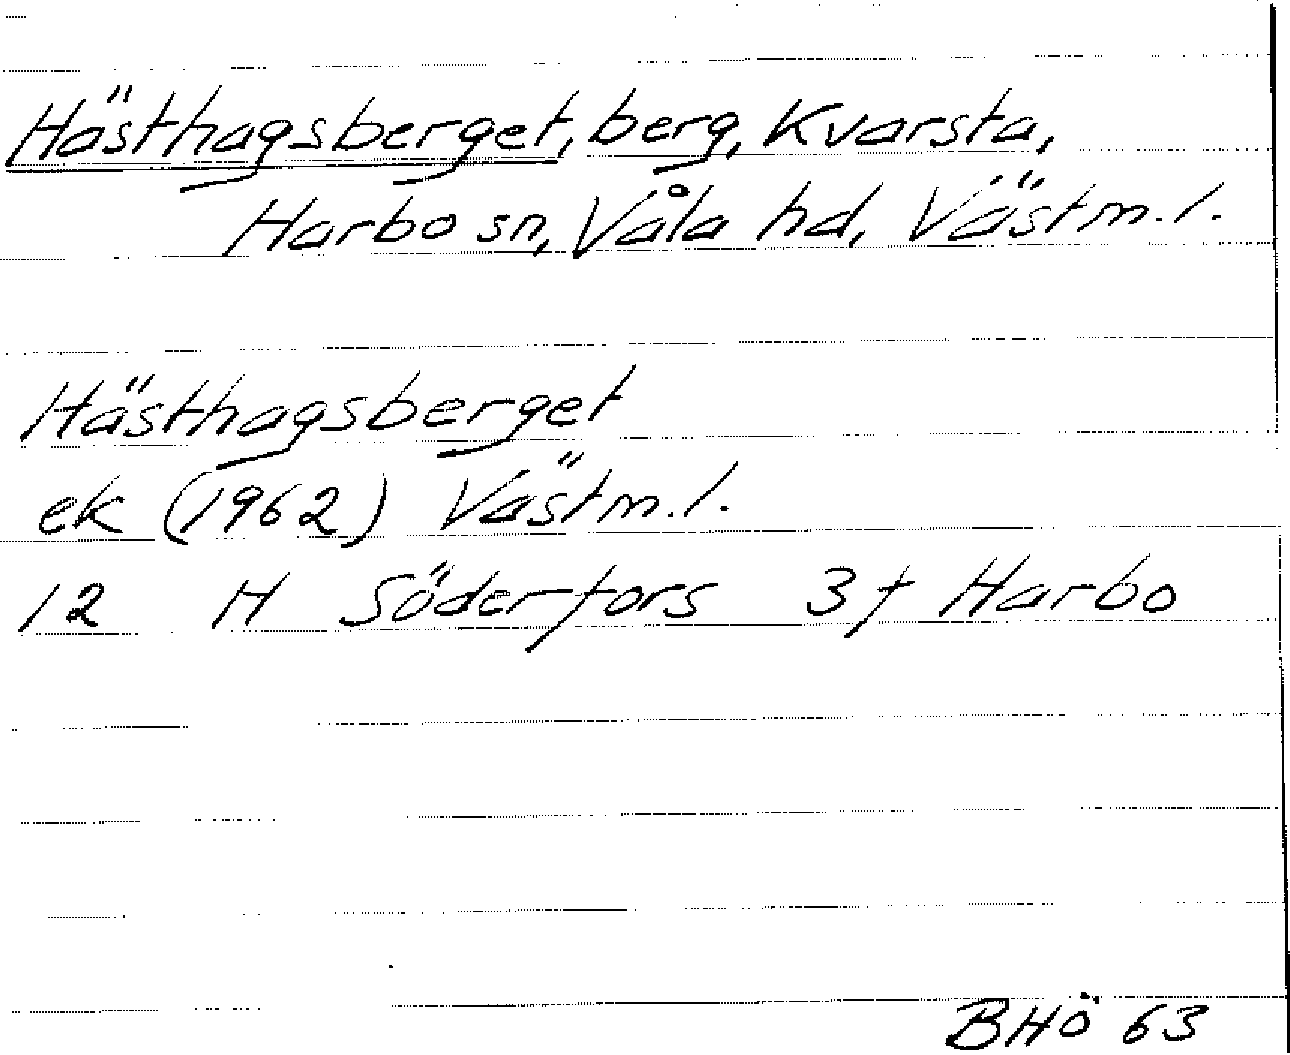 Hästhagsberget, berg, Kvarsta,
Harbo sn, Våla hd, Västm.l.
Hästhagsberget
ek (1962) Västm.l.
12 H Söderfors 3f Harbo
BHÖ 63